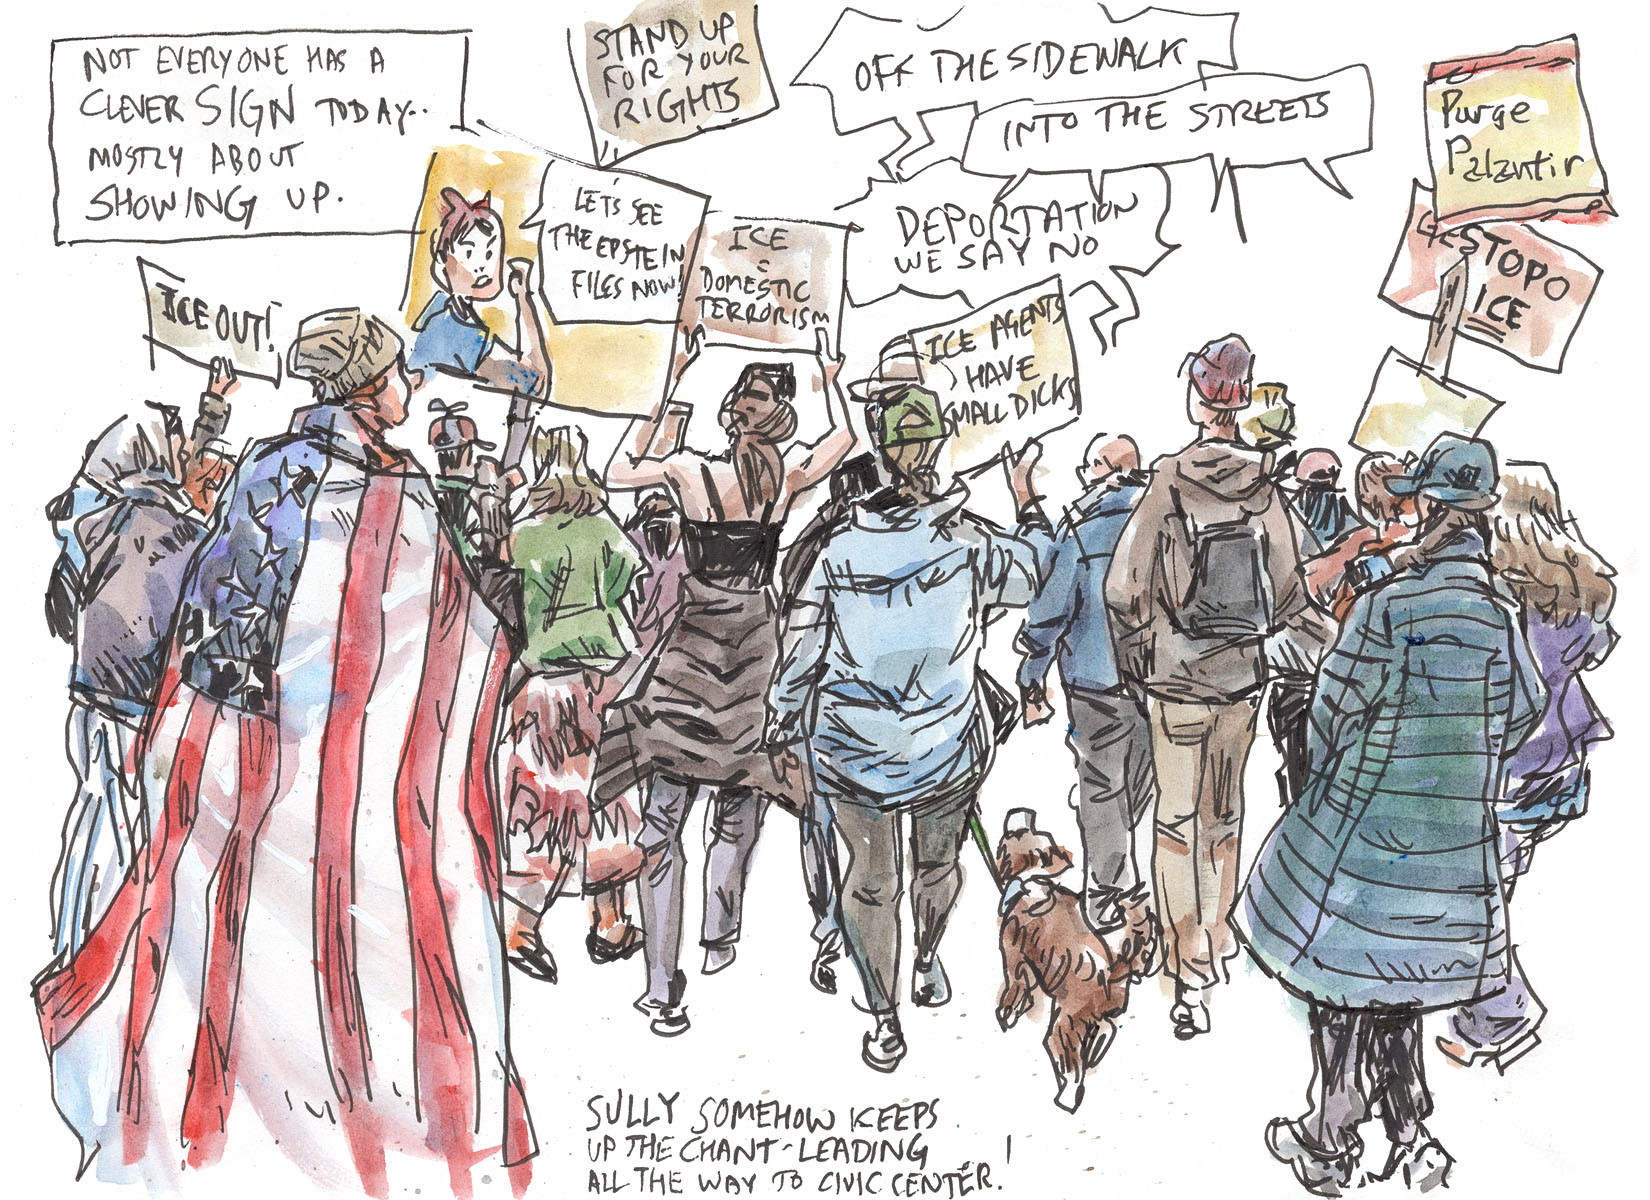 NOT EVERYONE HAS A
CLEVER SIGN TODAY..
MOSTLY ABOUT
SHOWING UP.
STAND UP
FOR YOUR
RIGHTS
OFF THE SIDEWALK
INTO THE STREETS
Purge
Palantir
LET'S SEE
THE EPSTEIN
FILES NOW!
ICE
=
DOMESTIC
TERRORISM
DEPORTATION
WE SAY NO
GESTOPO
ICE
ICE OUT!
ICE AGENTS
HAVE
SMALL DICKS
SULLY SOMEHOW KEEPS
UP THE CHANT-LEADING
ALL THE WAY TO CIVIC CENTER!